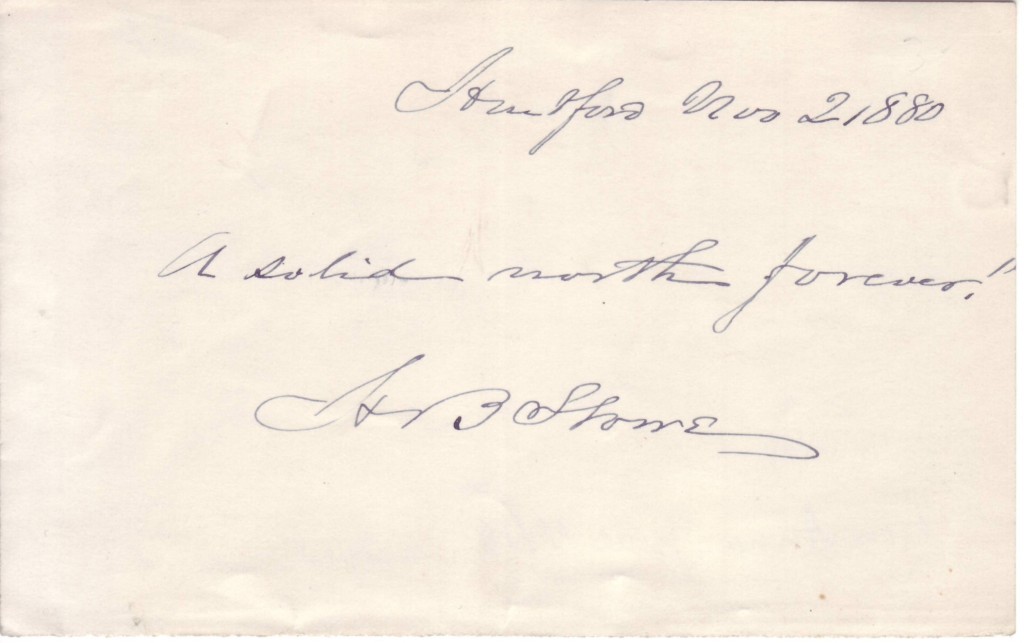 Hartford Nov 2 1880
A solid north forever!!
H B Stowe